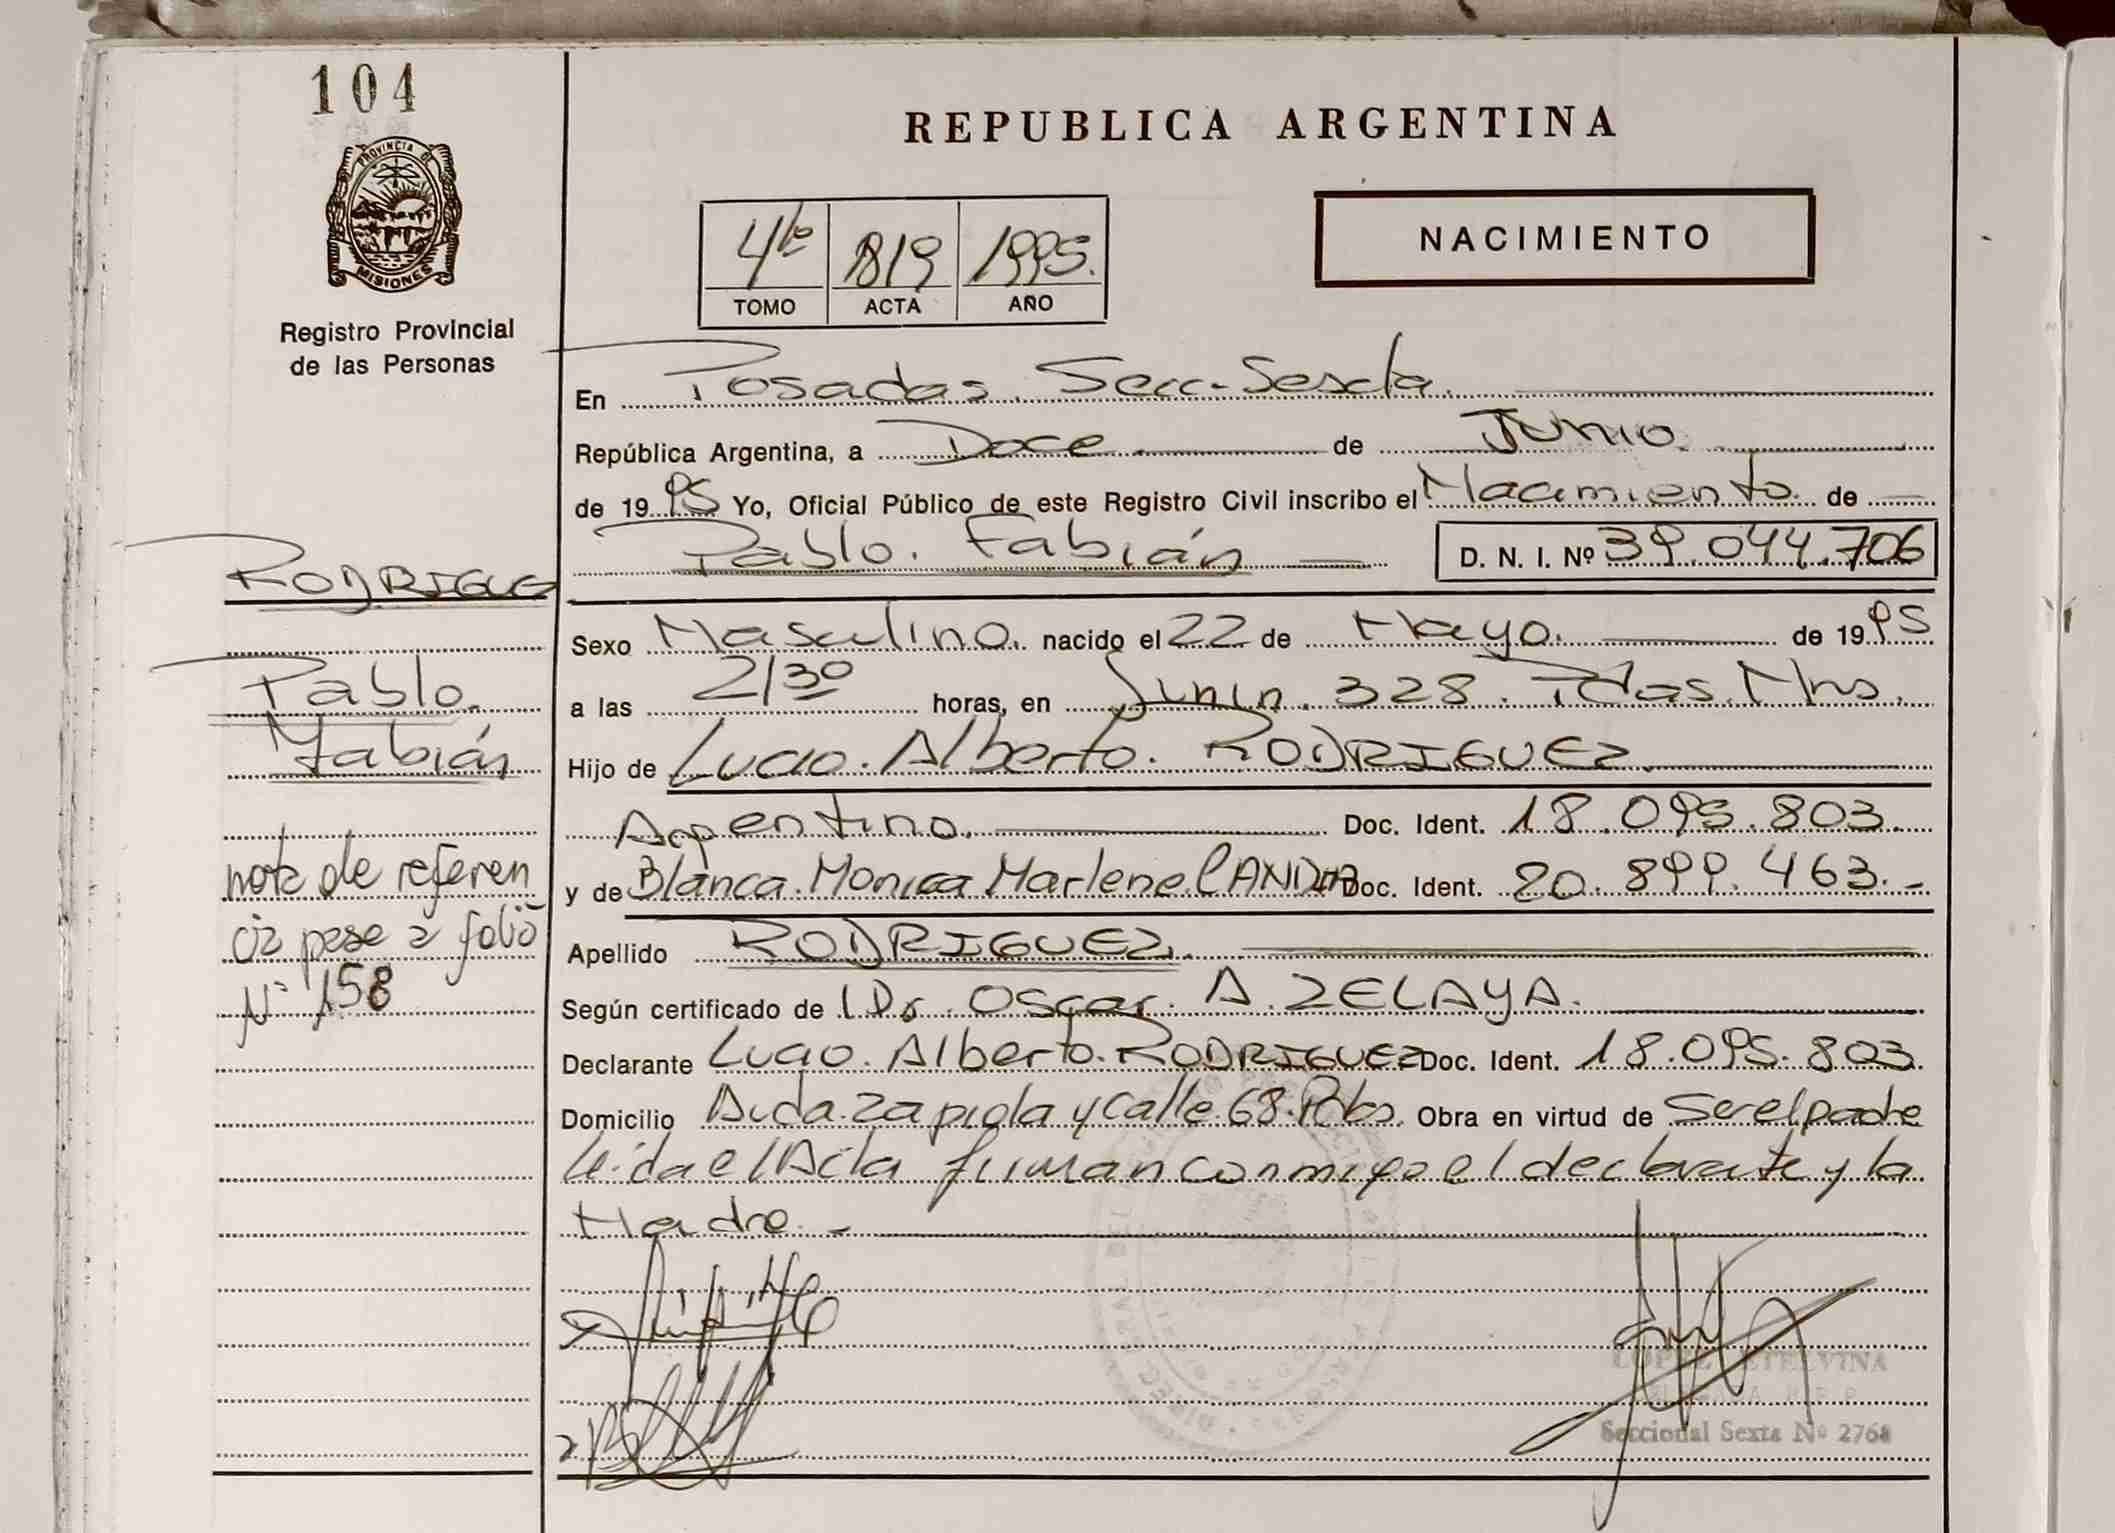 104
PROVINCIA DE
MISIONES
Registro Provincial
de las Personas
REPUBLICA ARGENTINA
4to 819 1995.
TOMO ACTA AÑO
NACIMIENTO
En Posadas Secc. Sexta
República Argentina, a Doce de Junio
de 1995 Yo, Oficial Público de este Registro Civil inscribo el Nacimiento de
Pablo. Fabián D. N. I. Nº 39.044.706
Sexo Masculino. nacido el 22 de Mayo. de 1995
a las 2130 horas, en Junin. 328. Pdas. Mns.
Hijo de Lucio. Alberto. RODRIGUEZ.
Argentino. Doc. Ident. 18.095.803.
y de Blanca. Monica Marlene Doc. Ident. 20.899.463.-
Apellido RODRIGUEZ.
Según certificado de Dr. Oscar. A. ZELAYA.
Declarante Lucio. Alberto. RODRIGUEZ Doc. Ident. 18.095.803.
Domicilio Avda. Zapiola y calle. 68. Obra en virtud de Ser el padre
leida el Acta firman conmigo el declarante y la
Madre. -
RODRIGUE
Pablo.
Fabián
nota de referen
cia pase a folio
Nº 158
LOPEZ ETELVINA
Seccional Sexta Nº 2768